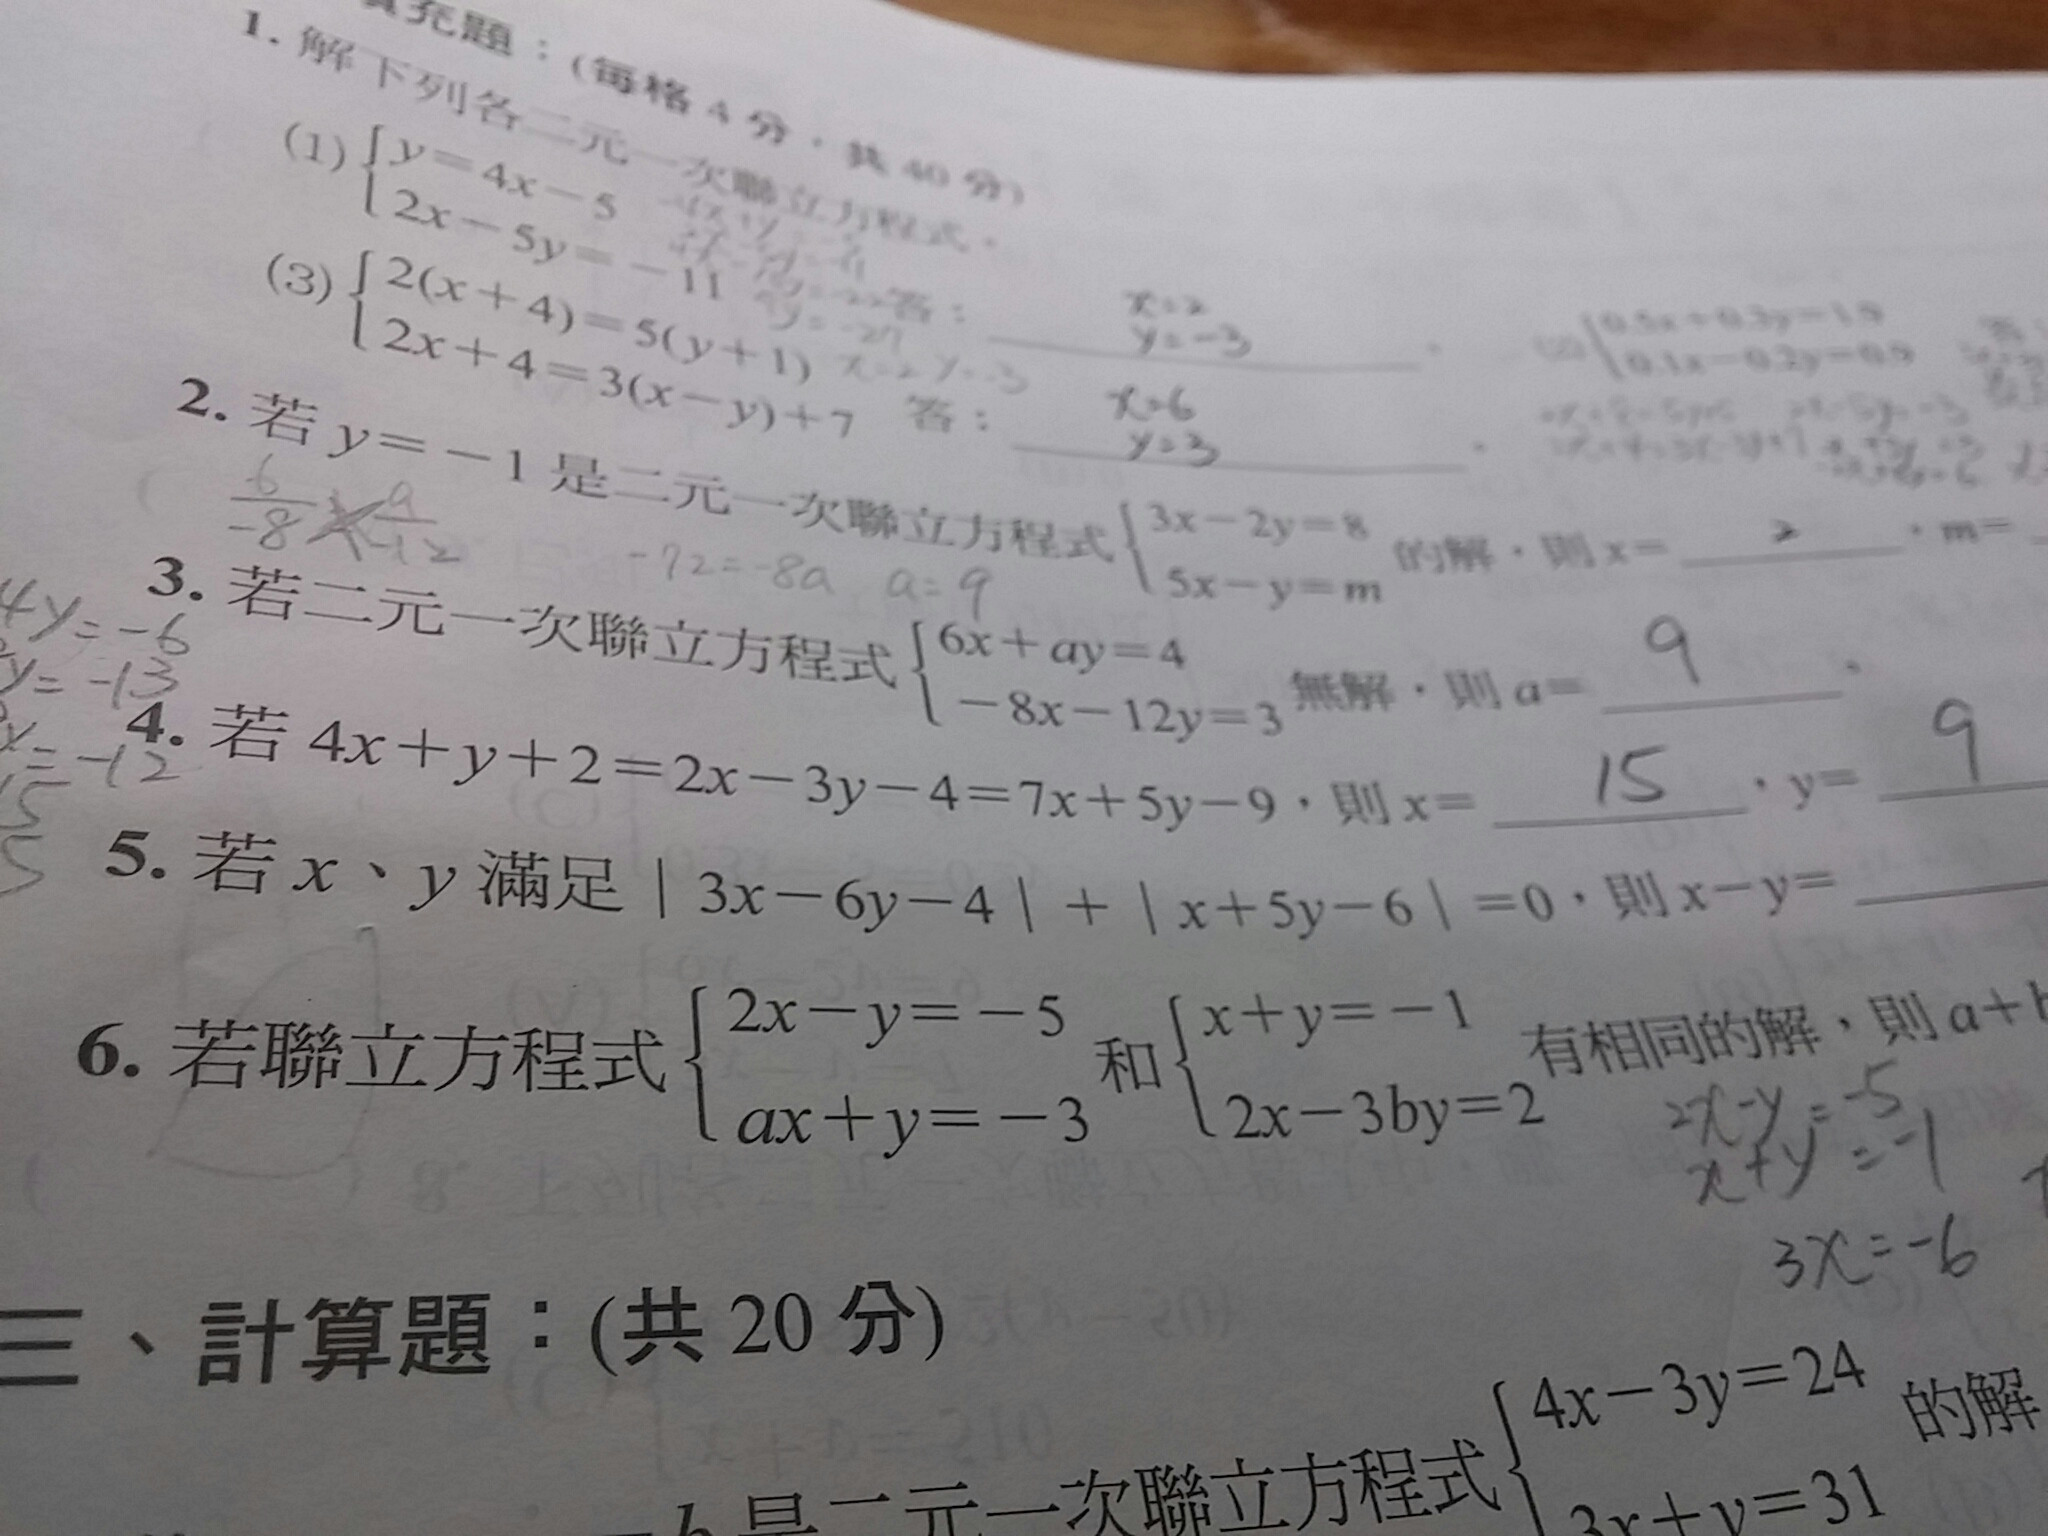 填充題：(每格 4 分，共 40 分)
1. 解下列各二元一次聯立方程式。
(1) { y＝4x－5
2x－5y＝－11 答： x=2 y=-3 。
9y=-27
x=2 y=-3
(3) { 2(x＋4)＝5(y＋1)
2x＋4＝3(x－y)＋7 答： x=6 y=3 。
0.1x－0.2y＝0.9
2. 若 y＝－1 是二元一次聯立方程式 { 3x－2y＝8
5x－y＝m 的解，則 x＝ 2 ，m＝
6/-8 a/-12
-72=-8a a=9
3. 若二元一次聯立方程式 { 6x＋ay＝4
－8x－12y＝3 無解，則 a＝ 9 。
4y=-6
y=-13
=-12
4. 若 4x＋y＋2＝2x－3y－4＝7x＋5y－9，則 x＝ 15 ，y＝ 9
5. 若 x、y 滿足｜3x－6y－4｜＋｜x＋5y－6｜＝0，則 x－y＝
6. 若聯立方程式 { 2x－y＝－5
ax＋y＝－3 和 { x＋y＝－1
2x－3by＝2 有相同的解，則 a＋b
2x-y=-5
x+y=-1
3x=-6
三、計算題：(共 20 分)
b 是二元一次聯立方程式 { 4x－3y＝24
3x＋y＝31 的解